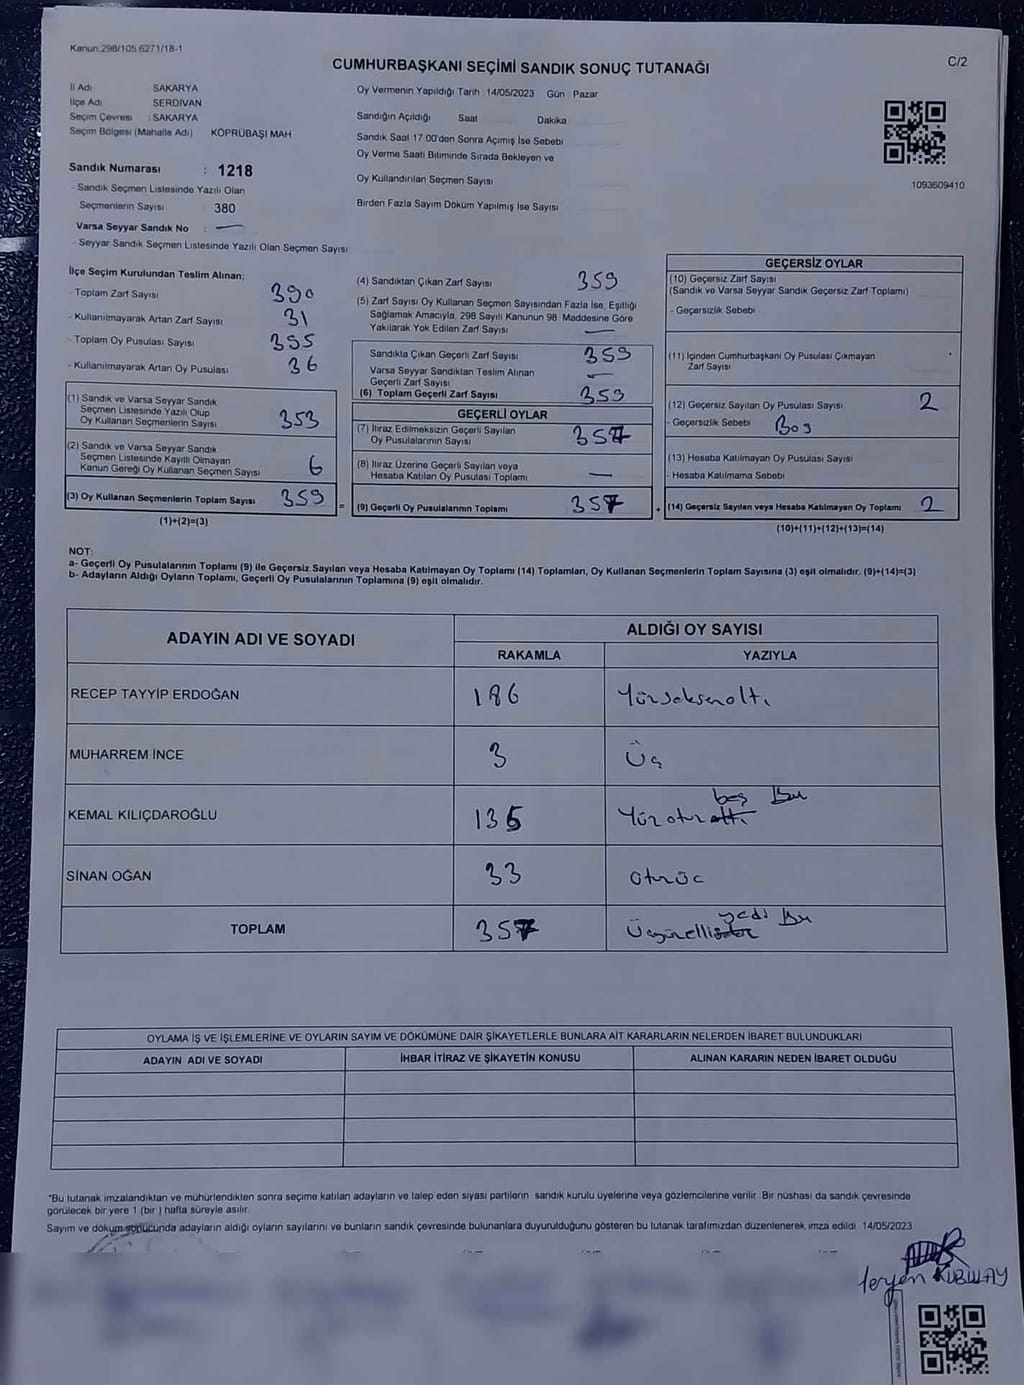 Kanun:298/105 6271/18-1
C/2
CUMHURBAŞKANI SEÇİMİ SANDIK SONUÇ TUTANAĞI
İl Adı SAKARYA
İlçe Adı SERDİVAN
Seçim Çevresi : SAKARYA
Seçim Bölgesi (Mahalle Adı) KÖPRÜBAŞI MAH
Sandık Numarası : 1218
- Sandık Seçmen Listesinde Yazılı Olan
Seçmenlerin Sayısı 380
Varsa Seyyar Sandık No : —
- Seyyar Sandık Seçmen Listesinde Yazılı Olan Seçmen Sayısı
Oy Vermenin Yapıldığı Tarih : 14/05/2023 Gün : Pazar
Sandığın Açıldığı Saat Dakika
Sandık Saat 17:00'den Sonra Açımış İse Sebebi
Oy Verme Saati Bitiminde Sırada Bekleyen ve
Oy Kullandırılan Seçmen Sayısı
Birden Fazla Sayım Döküm Yapılmış İse Sayısı
1093609410
İlçe Seçim Kurulundan Teslim Alınan;
- Toplam Zarf Sayısı 390
- Kullanılmayarak Artan Zarf Sayısı 31
- Toplam Oy Pusulası Sayısı 395
- Kullanılmayarak Artan Oy Pusulası 36
(1) Sandık ve Varsa Seyyar Sandık
Seçmen Listesinde Yazılı Olup
Oy Kullanan Seçmenlerin Sayısı 353
(2) Sandık ve Varsa Seyyar Sandık
Seçmen Listesinde Kayıtlı Olmayan
Kanun Gereği Oy Kullanan Seçmen Sayısı 6
(3) Oy Kullanan Seçmenlerin Toplam Sayısı 359 =
(1)+(2)=(3)
(4) Sandıktan Çıkan Zarf Sayısı 359
(5) Zarf Sayısı Oy Kullanan Seçmen Sayısından Fazla İse, Eşitliği
Sağlamak Amacıyla, 298 Sayılı Kanunun 98. Maddesine Göre
Yakılarak Yok Edilen Zarf Sayısı —
Sandıkta Çıkan Geçerli Zarf Sayısı 359
Varsa Seyyar Sandıktan Teslim Alınan
Geçerli Zarf Sayısı —
(6) Toplam Geçerli Zarf Sayısı 359
GEÇERLİ OYLAR
(7) İtiraz Edilmeksizin Geçerli Sayılan
Oy Pusulalarının Sayısı 357
(8) İtiraz Üzerine Geçerli Sayılan veya
Hesaba Katılan Oy Pusulası Toplamı —
(9) Geçerli Oy Pusulalarının Toplamı 357 +
GEÇERSİZ OYLAR
(10) Geçersiz Zarf Sayısı
(Sandık ve Varsa Seyyar Sandık Geçersiz Zarf Toplamı)
- Geçersizlik Sebebi
(11) İçinden Cumhurbaşkanı Oy Pusulası Çıkmayan
Zarf Sayısı
(12) Geçersiz Sayılan Oy Pusulası Sayısı 2
- Geçersizlik Sebebi Boş
(13) Hesaba Katılmayan Oy Pusulası Sayısı
- Hesaba Katılmama Sebebi
(14) Geçersiz Sayılan veya Hesaba Katılmayan Oy Toplamı 2
(10)+(11)+(12)+(13)=(14)
NOT:
a- Geçerli Oy Pusulalarının Toplamı (9) ile Geçersiz Sayılan veya Hesaba Katılmayan Oy Toplamı (14) Toplamları, Oy Kullanan Seçmenlerin Toplam Sayısına (3) eşit olmalıdır. (9)+(14)=(3)
b- Adayların Aldığı Oyların Toplamı, Geçerli Oy Pusulalarının Toplamına (9) eşit olmalıdır.
ADAYIN ADI VE SOYADI
ALDIĞI OY SAYISI
RAKAMLA YAZIYLA
RECEP TAYYİP ERDOĞAN 186 Yüzseksenaltı
MUHARREM İNCE 3 Üç
KEMAL KILIÇDAROĞLU 135 Yüzotuzaltı beş
SİNAN OĞAN 33 otuzüç
TOPLAM 357 Üçyüzelli yedi
OYLAMA İŞ VE İŞLEMLERİNE VE OYLARIN SAYIM VE DÖKÜMÜNE DAİR ŞİKAYETLERLE BUNLARA AİT KARARLARIN NELERDEN İBARET BULUNDUKLARI
ADAYIN ADI VE SOYADI İHBAR İTİRAZ VE ŞİKAYETİN KONUSU ALINAN KARARIN NEDEN İBARET OLDUĞU
"Bu tutanak imzalandıktan ve mühürlendikten sonra seçime katılan adayların ve talep eden siyasi partilerin sandık kurulu üyelerine veya gözlemcilerine verilir. Bir nüshası da sandık çevresinde
görülecek bir yere 1 (bir ) hafta süreyle asılır.
Sayım ve döküm sonucunda adayların aldığı oyların sayılarını ve bunların sandık çevresinde bulunanlara duyurulduğunu gösteren bu tutanak tarafımızdan düzenlenerek imza edildi. 14/05/2023
KUBİLAY